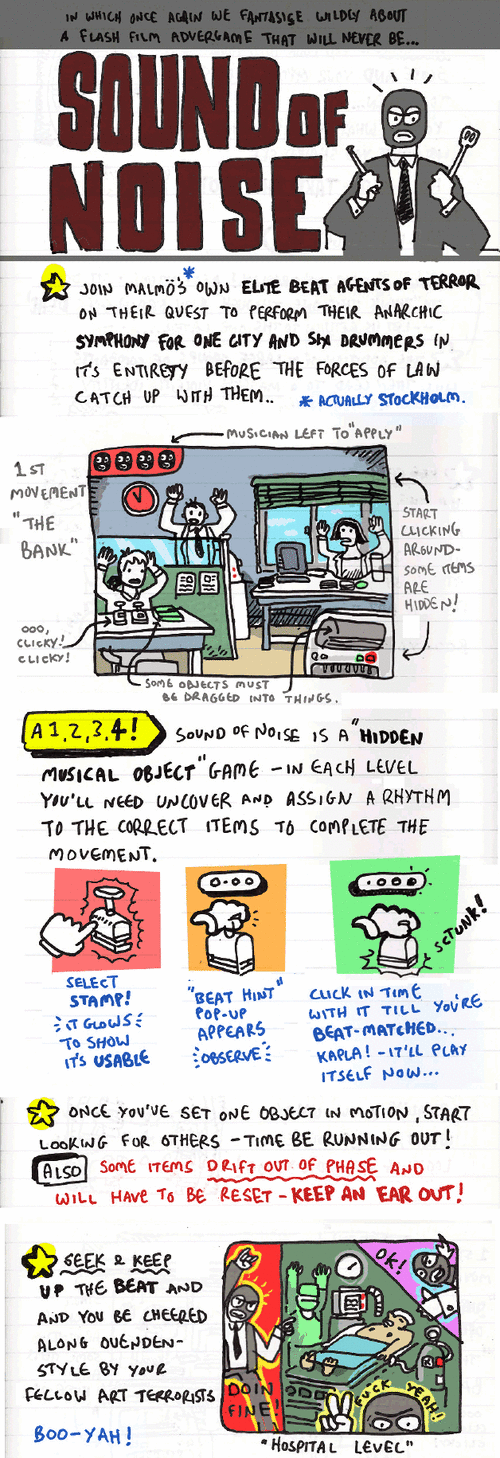 IN WHICH ONCE AGAIN WE FANTASISE WILDLY ABOUT
A FLASH FILM ADVERGAME THAT WILL NEVER BE...
SOUND OF
NOISE
JOIN MALMÖ'S* OWN ELITE BEAT AGENTS OF TERROR
ON THEIR QUEST TO PERFORM THEIR ANARCHIC
SYMPHONY FOR ONE CITY AND SIX DRUMMERS IN
IT'S ENTIRETY BEFORE THE FORCES OF LAW
CATCH UP WITH THEM..
* ACTUALLY STOCKHOLM.
MUSICIAN LEFT TO "APPLY"
1ST
MOVEMENT
"THE
BANK"
START
CLICKING
AROUND-
SOME ITEMS
ARE
HIDDEN!
OOO,
CLICKY!
CLICKY!
SOME OBJECTS MUST
BE DRAGGED INTO THINGS.
A 1,2,3,4!
SOUND OF NOISE IS A "HIDDEN
MUSICAL OBJECT" GAME - IN EACH LEVEL
YOU'LL NEED UNCOVER AND ASSIGN A RHYTHM
TO THE CORRECT ITEMS TO COMPLETE THE
MOVEMENT.
SCTUNK!
SELECT
STAMP!
IT GLOWS
TO SHOW
IT'S USABLE
"BEAT HINT"
POP-UP
APPEARS
OBSERVE
CLICK IN TIME
WITH IT TILL YOU'RE
BEAT-MATCHED...
KAPLA! - IT'LL PLAY
ITSELF NOW...
ONCE YOU'VE SET ONE OBJECT IN MOTION, START
LOOKING FOR OTHERS - TIME BE RUNNING OUT!
ALSO SOME ITEMS DRIFT OUT OF PHASE AND
WILL HAVE TO BE RESET - KEEP AN EAR OUT!
SEEK & KEEP
UP THE BEAT AND
AND YOU BE CHEERED
ALONG OUENDEN-
STYLE BY YOUR
FELLOW ART TERRORISTS
BOO-YAH!
OK!
DOIN
FINE!
FUCK YEAH!
"HOSPITAL LEVEL"